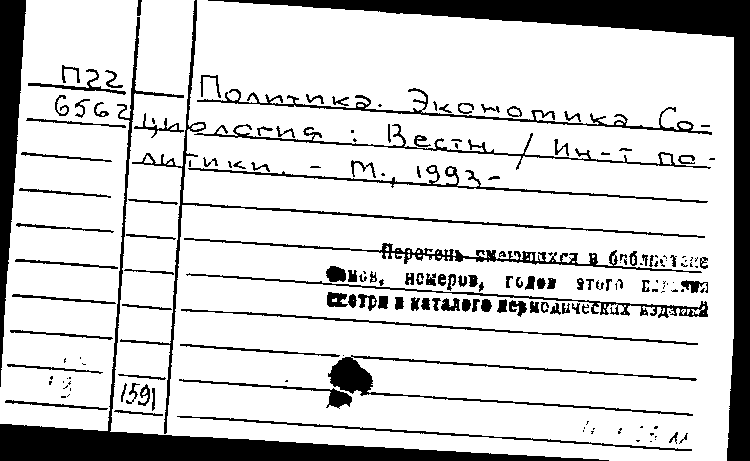 П22
6562
Политика. Экономика. Со-
циология : Вестн. / Ин-т по-
литики. - М., 1993-
Перечень имеющихся в библиотеке
томов, номеров, годов этого издания
смотри в каталоге периодических изданий
1591